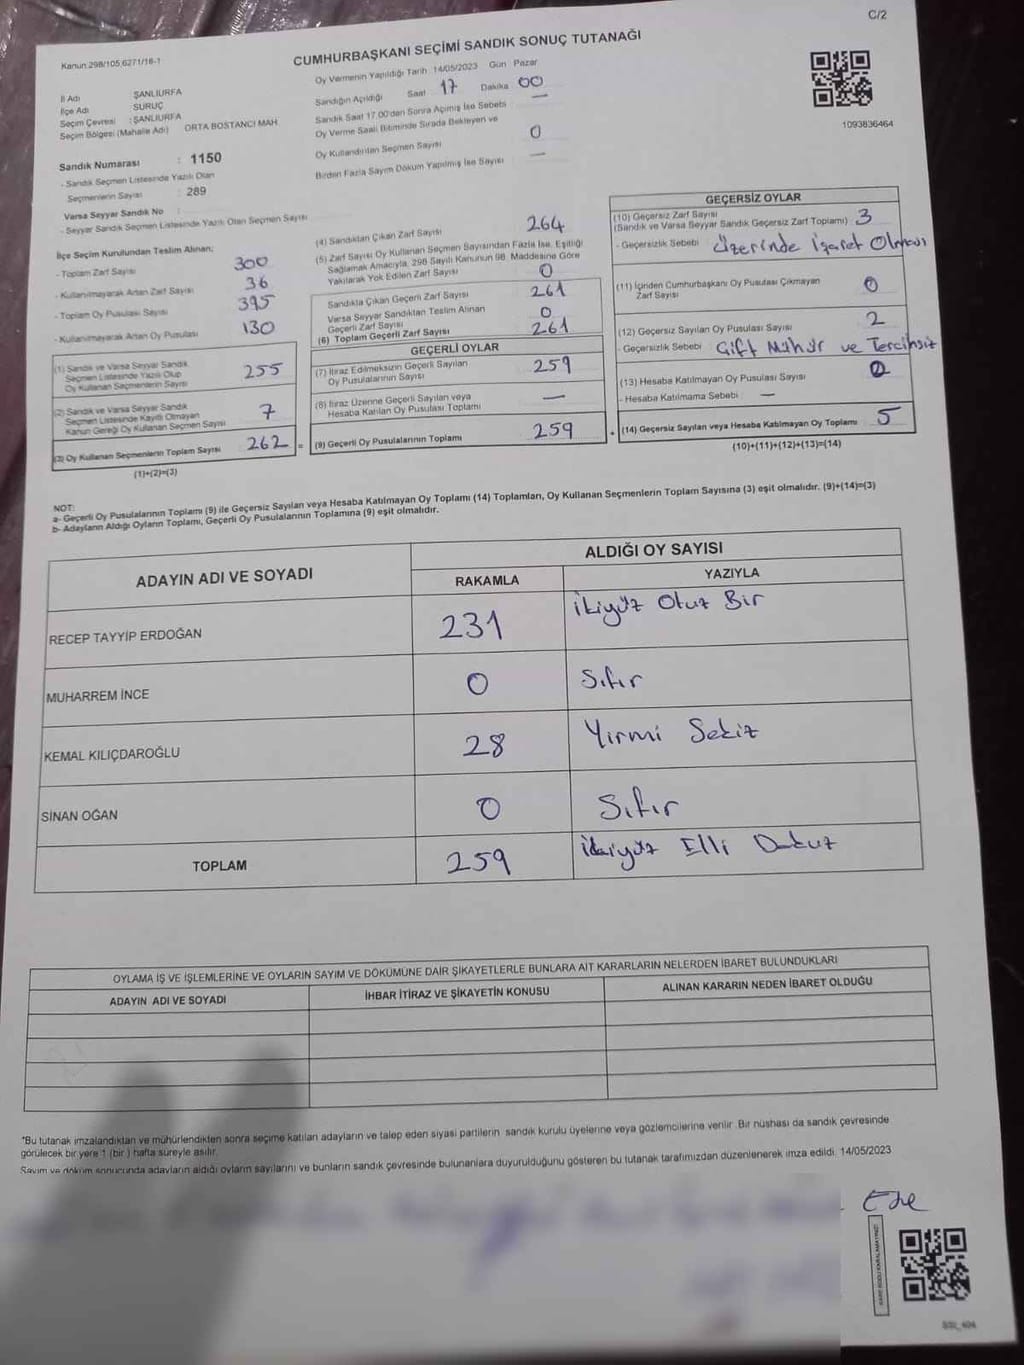 C/2
Kanun 298/105,6271/18-1
CUMHURBAŞKANI SEÇİMİ SANDIK SONUÇ TUTANAĞI
Oy Vermenin Yapıldığı Tarih :14/05/2023 Gün Pazar
İl Adı ŞANLIURFA
İlçe Adı SURUÇ
Seçim Çevresi : ŞANLIURFA
Seçim Bölgesi (Mahalle Adı) ORTA BOSTANCI MAH.
Sandık Numarası : 1150
- Sandık Seçmen Listesinde Yazılı Olan
Seçmenlerin Sayısı : 289
Varsa Seyyar Sandık No :
- Seyyar Sandık Seçmen Listesinde Yazılı Olan Seçmen Sayısı
Sandığın Açıldığı Saat 17 Dakika 00
Sandık Saat 17.00'den Sonra Açılmış İse Sebebi —
Oy Verme Saati Bitiminde Sırada Bekleyen ve
Oy Kullandırılan Seçmen Sayısı 0
Birden Fazla Sayım Döküm Yapılmış İse Sayısı —
1093836464
İlçe Seçim Kurulundan Teslim Alınan;
- Toplam Zarf Sayısı 300
- Kullanılmayarak Artan Zarf Sayısı 36
- Toplam Oy Pusulası Sayısı 395
- Kullanılmayarak Artan Oy Pusulası 130
(1) Sandık ve Varsa Seyyar Sandık
Seçmen Listesinde Yazılı Olup
Oy Kullanan Seçmenlerin Sayısı 255
(2) Sandık ve Varsa Seyyar Sandık
Seçmen Listesinde Kayıtlı Olmayan
Kanun Gereği Oy Kullanan Seçmen Sayısı 7
(3) Oy Kullanan Seçmenlerin Toplam Sayısı 262 =
(1)+(2)=(3)
(4) Sandıktan Çıkan Zarf Sayısı 264
(5) Zarf Sayısı Oy Kullanan Seçmen Sayısından Fazla İse, Eşitliği
Sağlamak Amacıyla, 298 Sayılı Kanunun 98. Maddesine Göre
Yakılarak Yok Edilen Zarf Sayısı 0
Sandıkta Çıkan Geçerli Zarf Sayısı 261
Varsa Seyyar Sandıktan Teslim Alınan
Geçerli Zarf Sayısı 0
(6) Toplam Geçerli Zarf Sayısı 261
GEÇERLİ OYLAR
(7) İtiraz Edilmeksizin Geçerli Sayılan
Oy Pusulalarının Sayısı 259
(8) İtiraz Üzerine Geçerli Sayılan veya
Hesaba Katılan Oy Pusulası Toplamı —
(9) Geçerli Oy Pusulalarının Toplamı 259 +
GEÇERSİZ OYLAR
(10) Geçersiz Zarf Sayısı
(Sandık ve Varsa Seyyar Sandık Geçersiz Zarf Toplamı) 3
- Geçersizlik Sebebi Üzerinde İşaret Olması
(11) İçinden Cumhurbaşkanı Oy Pusulası Çıkmayan
Zarf Sayısı 0
(12) Geçersiz Sayılan Oy Pusulası Sayısı 2
- Geçersizlik Sebebi Çift Mühür ve Tercihsiz
(13) Hesaba Katılmayan Oy Pusulası Sayısı 0
- Hesaba Katılmama Sebebi —
(14) Geçersiz Sayılan veya Hesaba Katılmayan Oy Toplamı 5
(10)+(11)+(12)+(13)=(14)
NOT:
a- Geçerli Oy Pusulalarının Toplamı (9) ile Geçersiz Sayılan veya Hesaba Katılmayan Oy Toplamı (14) Toplamları, Oy Kullanan Seçmenlerin Toplam Sayısına (3) eşit olmalıdır. (9)+(14)=(3)
b- Adayların Aldığı Oyların Toplamı, Geçerli Oy Pusulalarının Toplamına (9) eşit olmalıdır.
ADAYIN ADI VE SOYADI
ALDIĞI OY SAYISI
RAKAMLA YAZIYLA
RECEP TAYYİP ERDOĞAN 231 İkiyüz Otuz Bir
MUHARREM İNCE 0 Sıfır
KEMAL KILIÇDAROĞLU 28 Yirmi Sekiz
SİNAN OĞAN 0 Sıfır
TOPLAM 259 İkiyüz Elli Dokuz
OYLAMA İŞ VE İŞLEMLERİNE VE OYLARIN SAYIM VE DÖKÜMÜNE DAİR ŞİKAYETLERLE BUNLARA AİT KARARLARIN NELERDEN İBARET BULUNDUKLARI
ADAYIN ADI VE SOYADI İHBAR İTİRAZ VE ŞİKAYETİN KONUSU ALINAN KARARIN NEDEN İBARET OLDUĞU
*Bu tutanak imzalandıktan ve mühürlendikten sonra seçime katılan adayların ve talep eden siyasi partilerin sandık kurulu üyelerine veya gözlemcilerine verilir. Bir nüshası da sandık çevresinde
görülecek bir yere 1 (bir) hafta süreyle asılır.
Sayım ve döküm sonucunda adayların aldığı oyların sayılarını ve bunların sandık çevresinde bulunanlara duyurulduğunu gösteren bu tutanak tarafımızdan düzenlenerek imza edildi. 14/05/2023